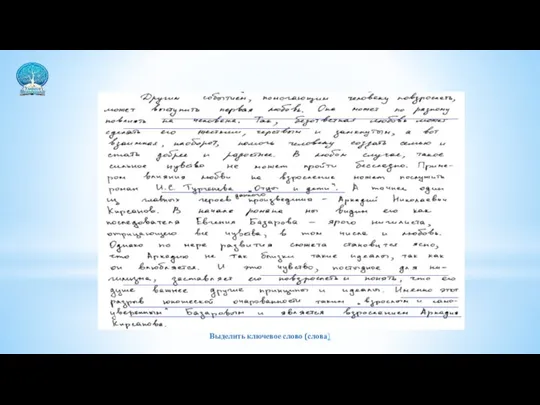 Другим событием, помогающим человеку повзрослеть,
может выступить первая любовь. Она может по разному
повлиять на человека. Так, безответная любовь может
сделать его жестким, черствым и замкнутым, а вот
взаимная, наоборот, помочь человеку создать семью и
стать добрее и радостнее. В любом случае, такое
сильное чувство не может пройти бесследно. Приме-
ром влияния любви на взросление может послужить
роман И.С. Тургенева "Отцы и дети". А точнее один
из главных героев данного произведения – Аркадий Николаевич
Кирсанов. В начале романа мы видим его как
последователя Евгения Базарова – ярого нигилиста,
отрицающего все чувства, в том числе и любовь.
Однако по мере развития сюжета становится ясно,
что Аркадию не так близки такие идеалы, так как
он влюбляется. И это чувство, постыдное для ни-
гилизма, заставляет его повзрослеть и понять, что его
душе важнее другие принципы и идеалы. Именно этот
разрыв юношеской очарованности таким "взрослым и само-
уверенным" Базаровым и является взрослением Аркадия
Кирсанова.
Выделить ключевое слово (слова)